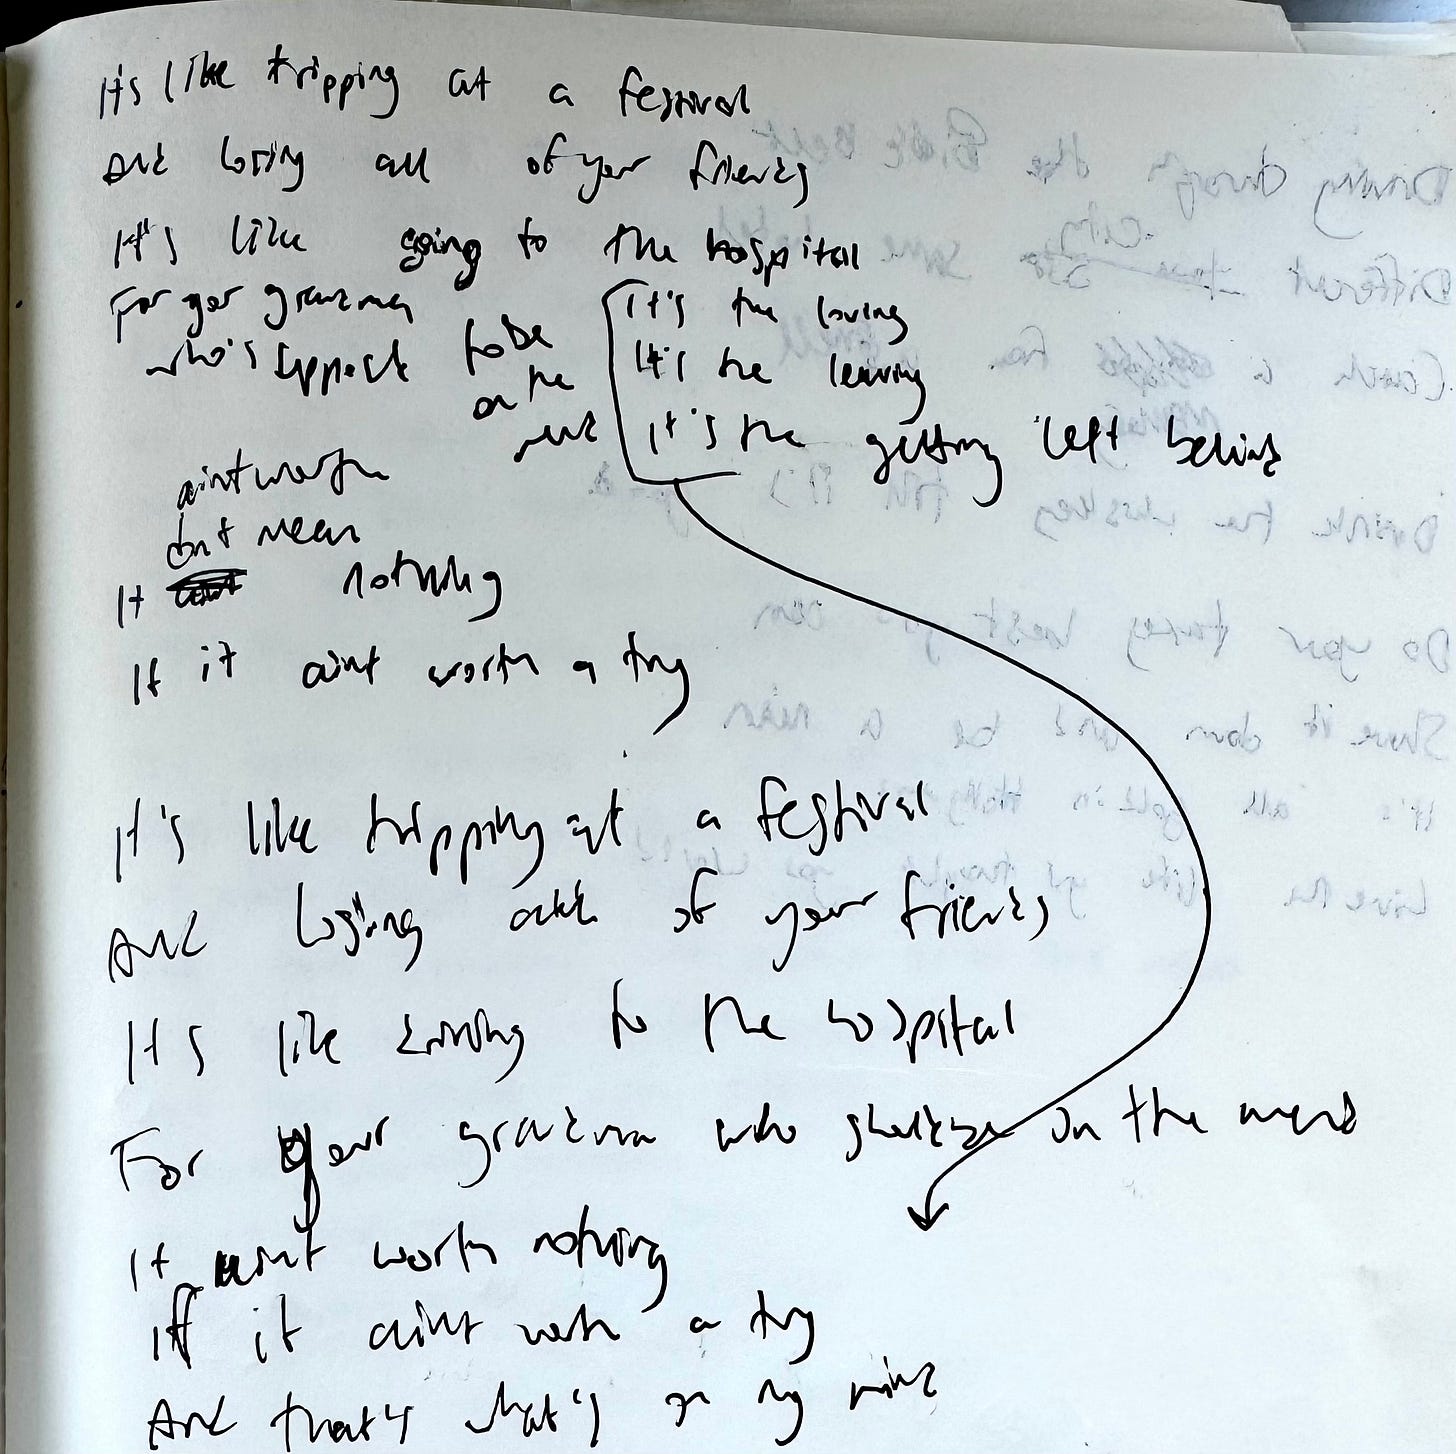 It's like tripping at a festival
And losing all of your friends
It's like going to the hospital
For your grandma
who's suppose to be
on the
mend
It's the loving
It's the leaving
It's the getting left behind
aint worth
dont mean
It nothing
If it aint worth a try
It's like tripping at a festival
And losing all of your friends
It's like driving to the hospital
For your grandma who on the mend
It aint worth nothing
If it aint worth a try
And that's what's on my mind
Driving through the Bible Belt
Different city same
Drink the whiskey
Do your best you can